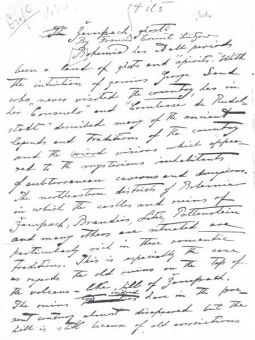 The Žampach ghosts
By Francis Count Lützow
Bohemia has at all periods
been a land of ghosts and "spirits". With
the intuition of genius George Sand
who never visited the country has in
her Consuelo and "Comtesse de Rudol-
stadt" described many of the ancient
legends and traditions of the country
and the weird visions which appea-
red to the mysterious inhabitants
of subterranean caverns and dungeons.
The northeastern districts of Bohemia
in which the castles and ruins of
Žampach, Brandeis, Litic, Pottenstein
and many others are situated are
particularly rich in these romantic
traditions. This is especially the case
as regards the old ruins on the top of
the volcano-like hill of Žampach.
The ruins have in the pre-
sent century almost disappeared but the
hill is still because of old associations